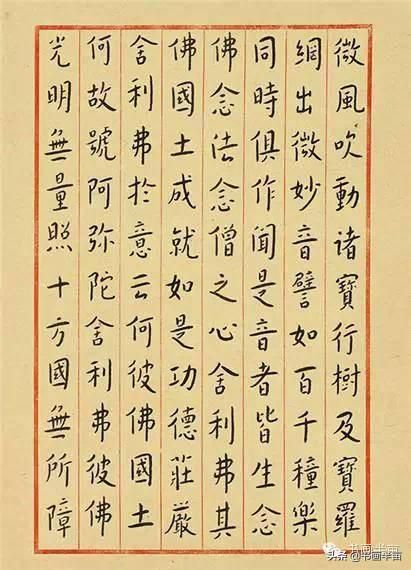 微風吹動諸寶行樹及寶羅
網出微妙音譬如百千種樂
同時俱作聞是音者皆生念
佛念法念僧之心舍利弗其
佛國土成就如是功德莊嚴
舍利弗於意云何彼佛國土
何故號阿弥陀舍利弗彼佛
光明無量照十方國無所障
书画半亩
头条 @书画半亩